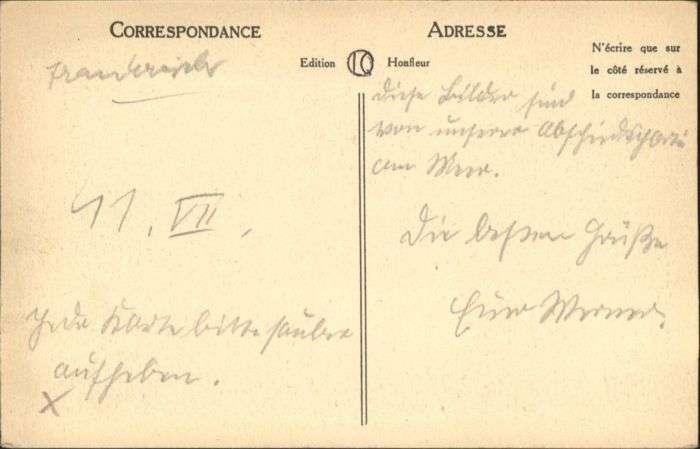 CORRESPONDANCE
ADRESSE
Edition LQ Honfleur
N'écrire que sur
le côté réservé à
la correspondance
Frankreich
41. VII.
Jede Karte bitte sauber
aufheben.
X
Diese Bilder sind
von unserer
am Meer.
Die besten Grüße
Euer Werner.